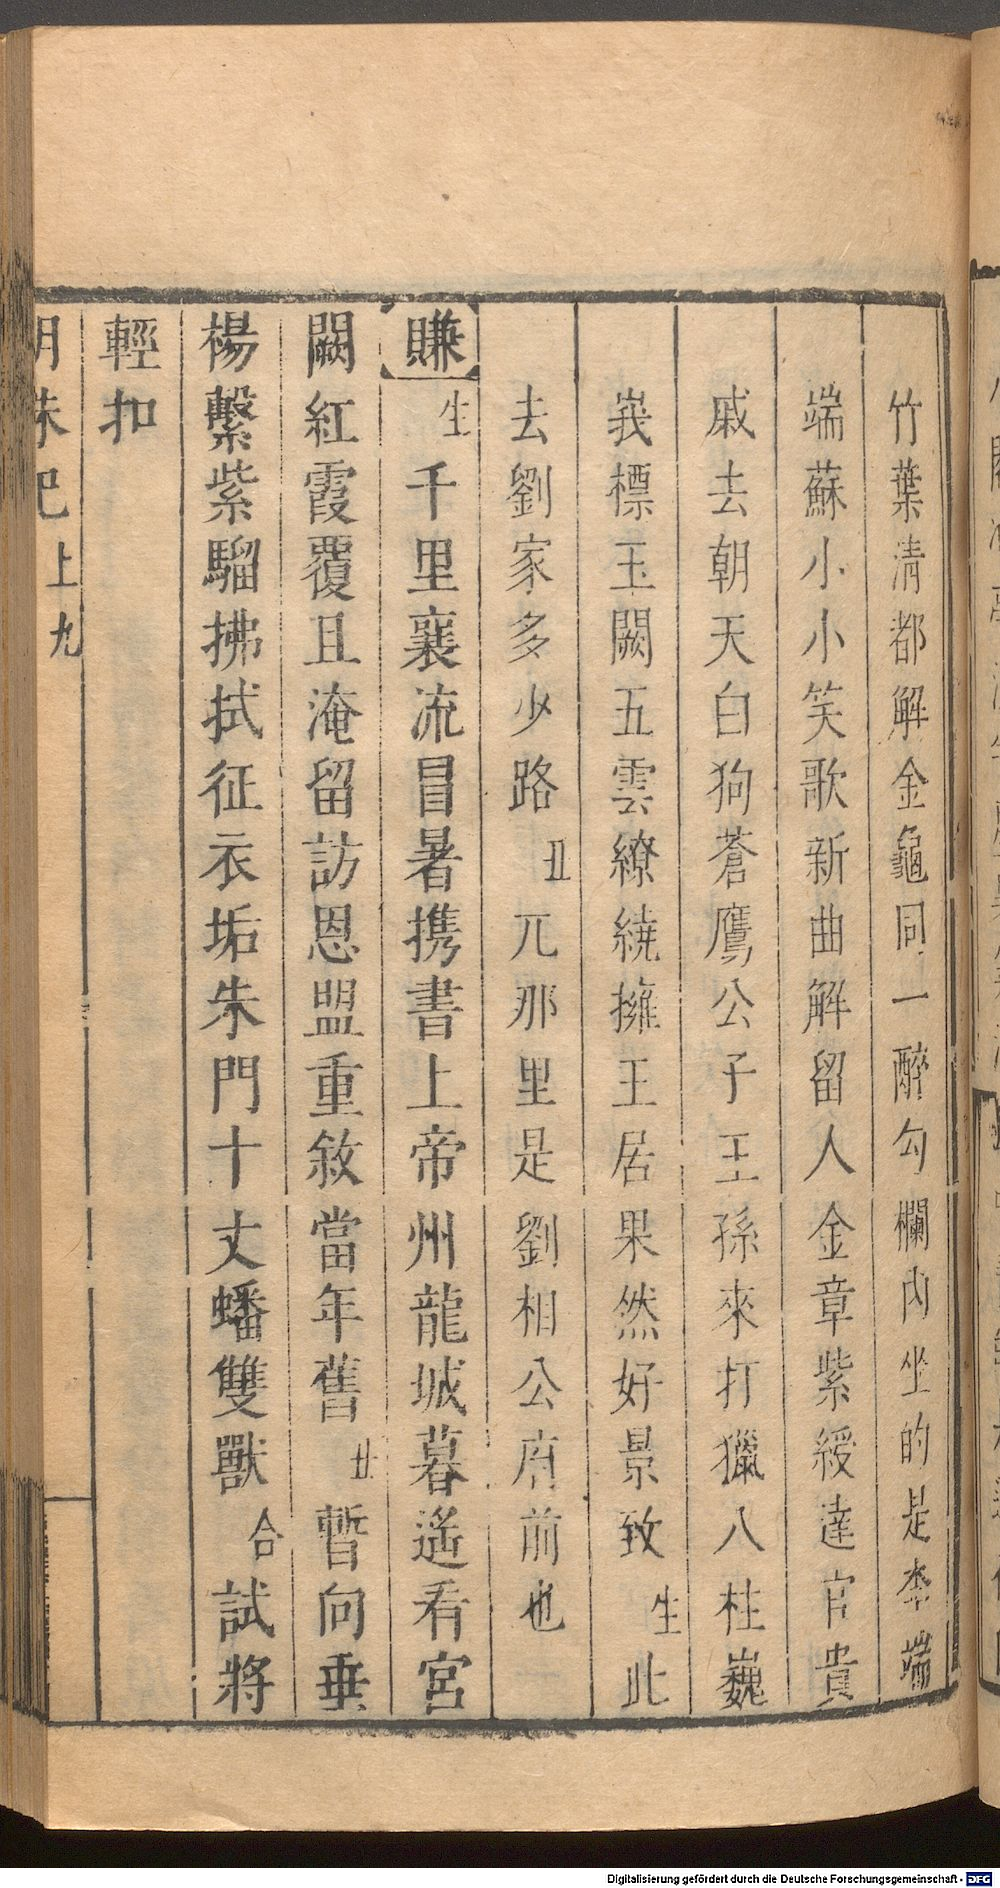 竹葉清都解金龜同一醉勾欄內坐的是李端
端蘇小小笑歌新曲解留人金章紫綬達官貴
戚去朝天白狗蒼鷹公子王孫來打獵八柱巍
峩標玉闕五雲繚繞擁王居果然好景致生此
去劉家多少路丑兀那里是劉相公府前也
賺生千里襄流冒暑携書上帝州龍城暮遙看宮
闕紅霞覆且淹留訪恩盟重敘當年舊丑暫向垂
楊繫紫騮拂拭征衣垢朱門十丈蟠雙獸合試將
輕扣
明珠記上九
Digitalisierung gefördert durch die Deutsche Forschungsgemeinschaft - DFG